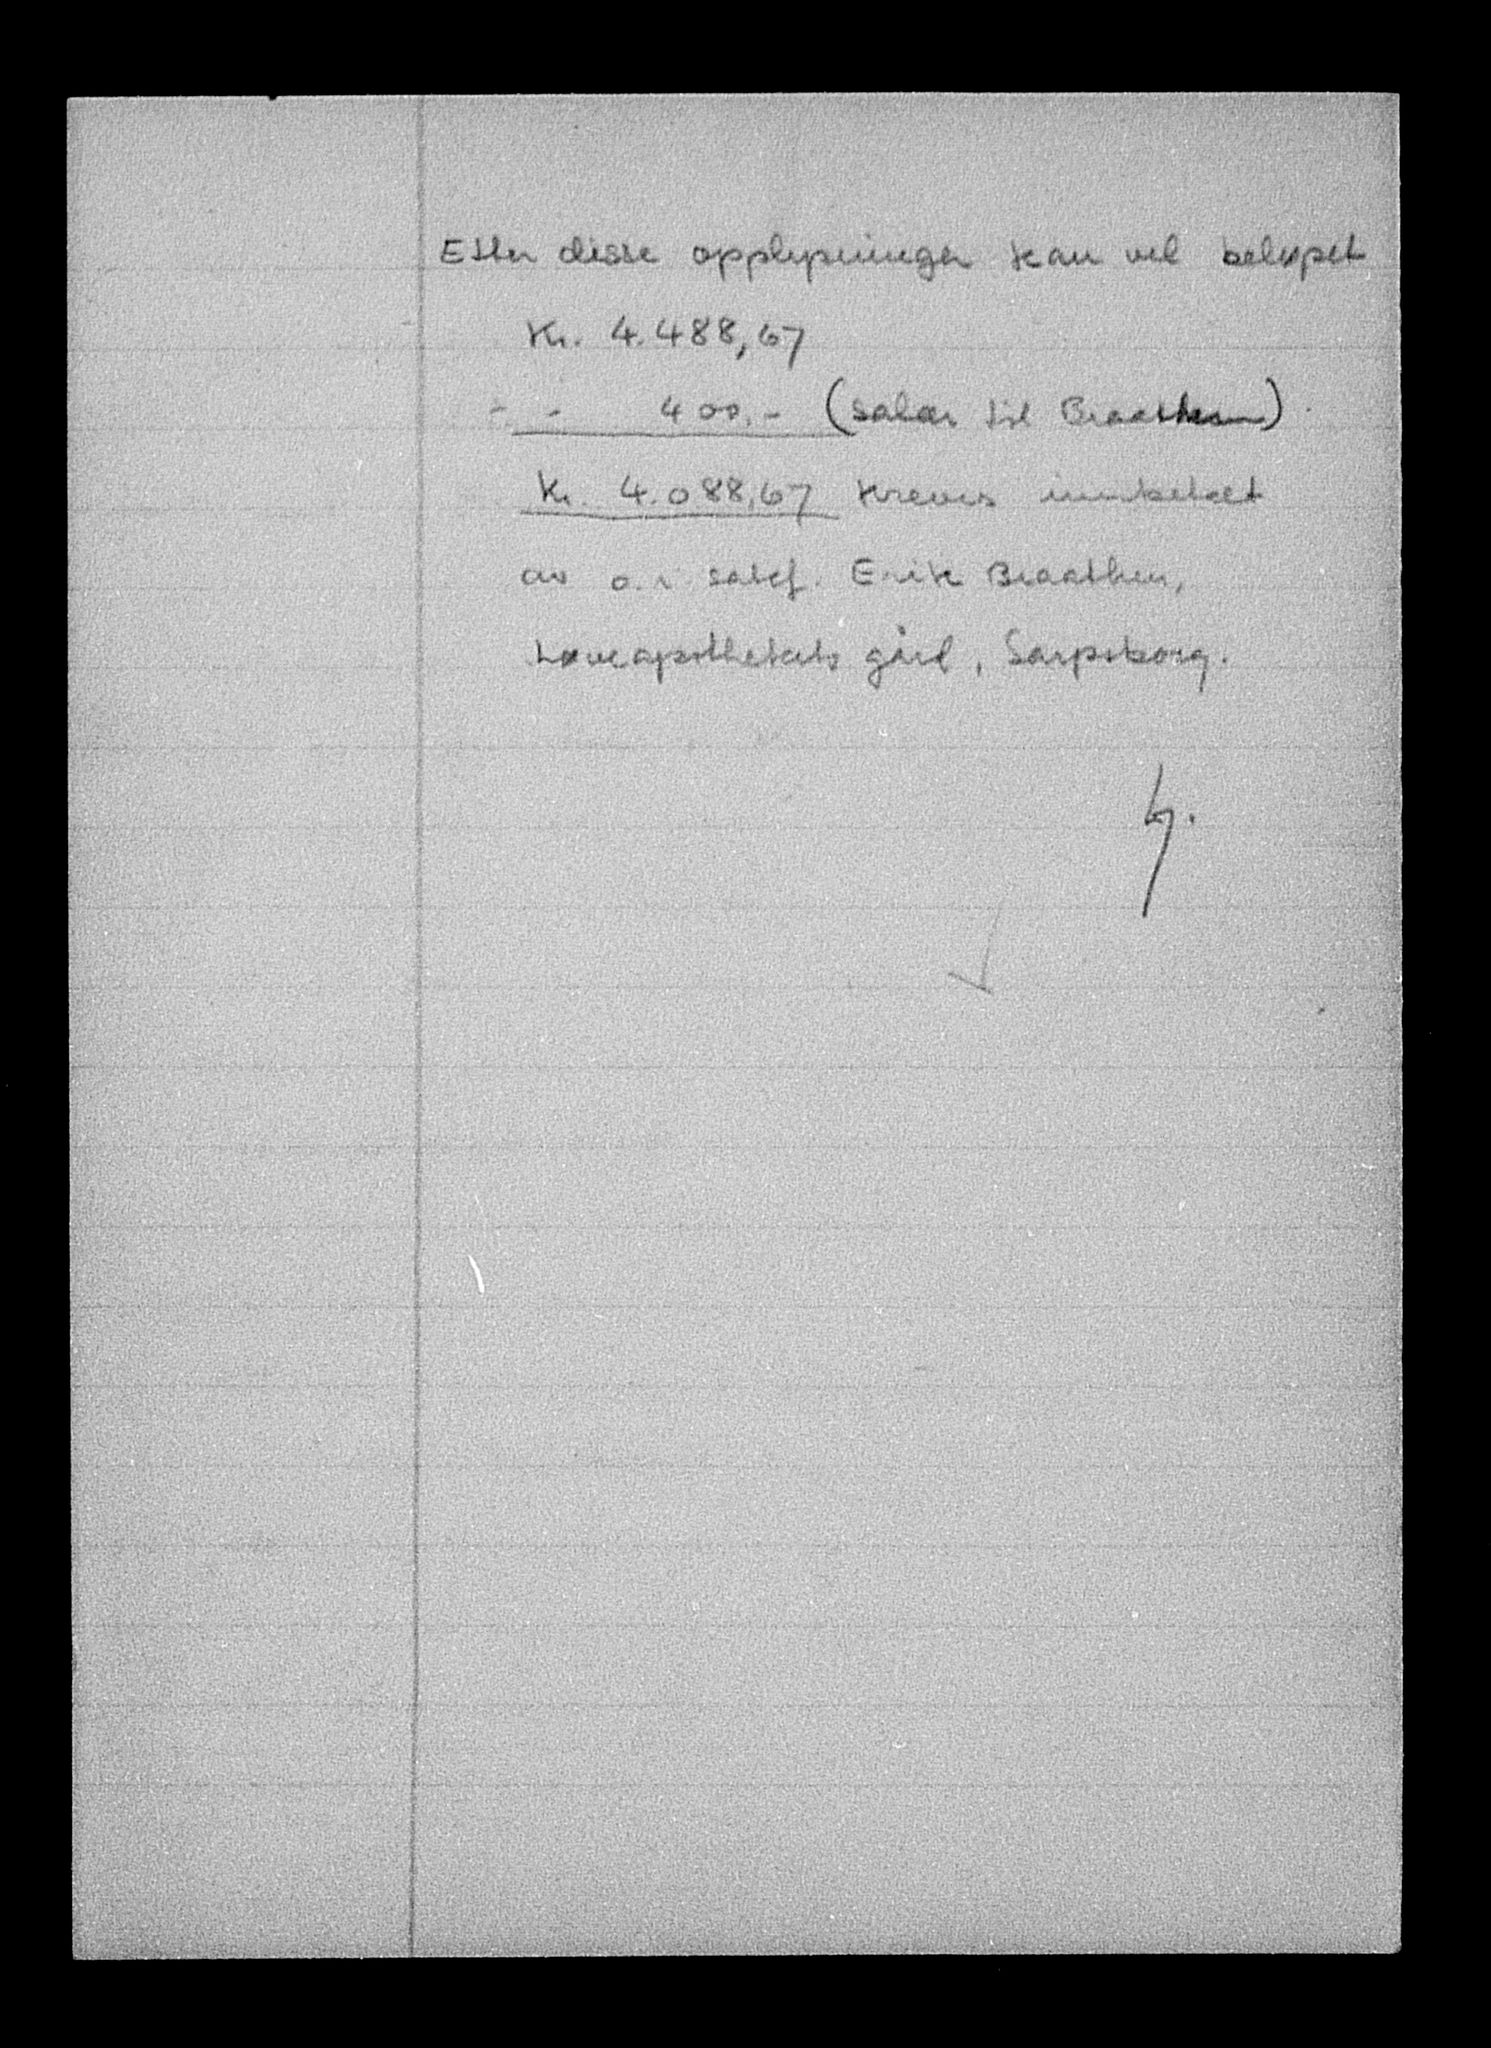 Etter disse opplysninger kan vel beløpet
Kr. 4.488,67
- - 400.- (salær til Braathen)
Kr. 4.088,67 kreves innbetalt
av o.r. sakf. Erik Braathen,
Løveapothekets gård, Sarpsborg.